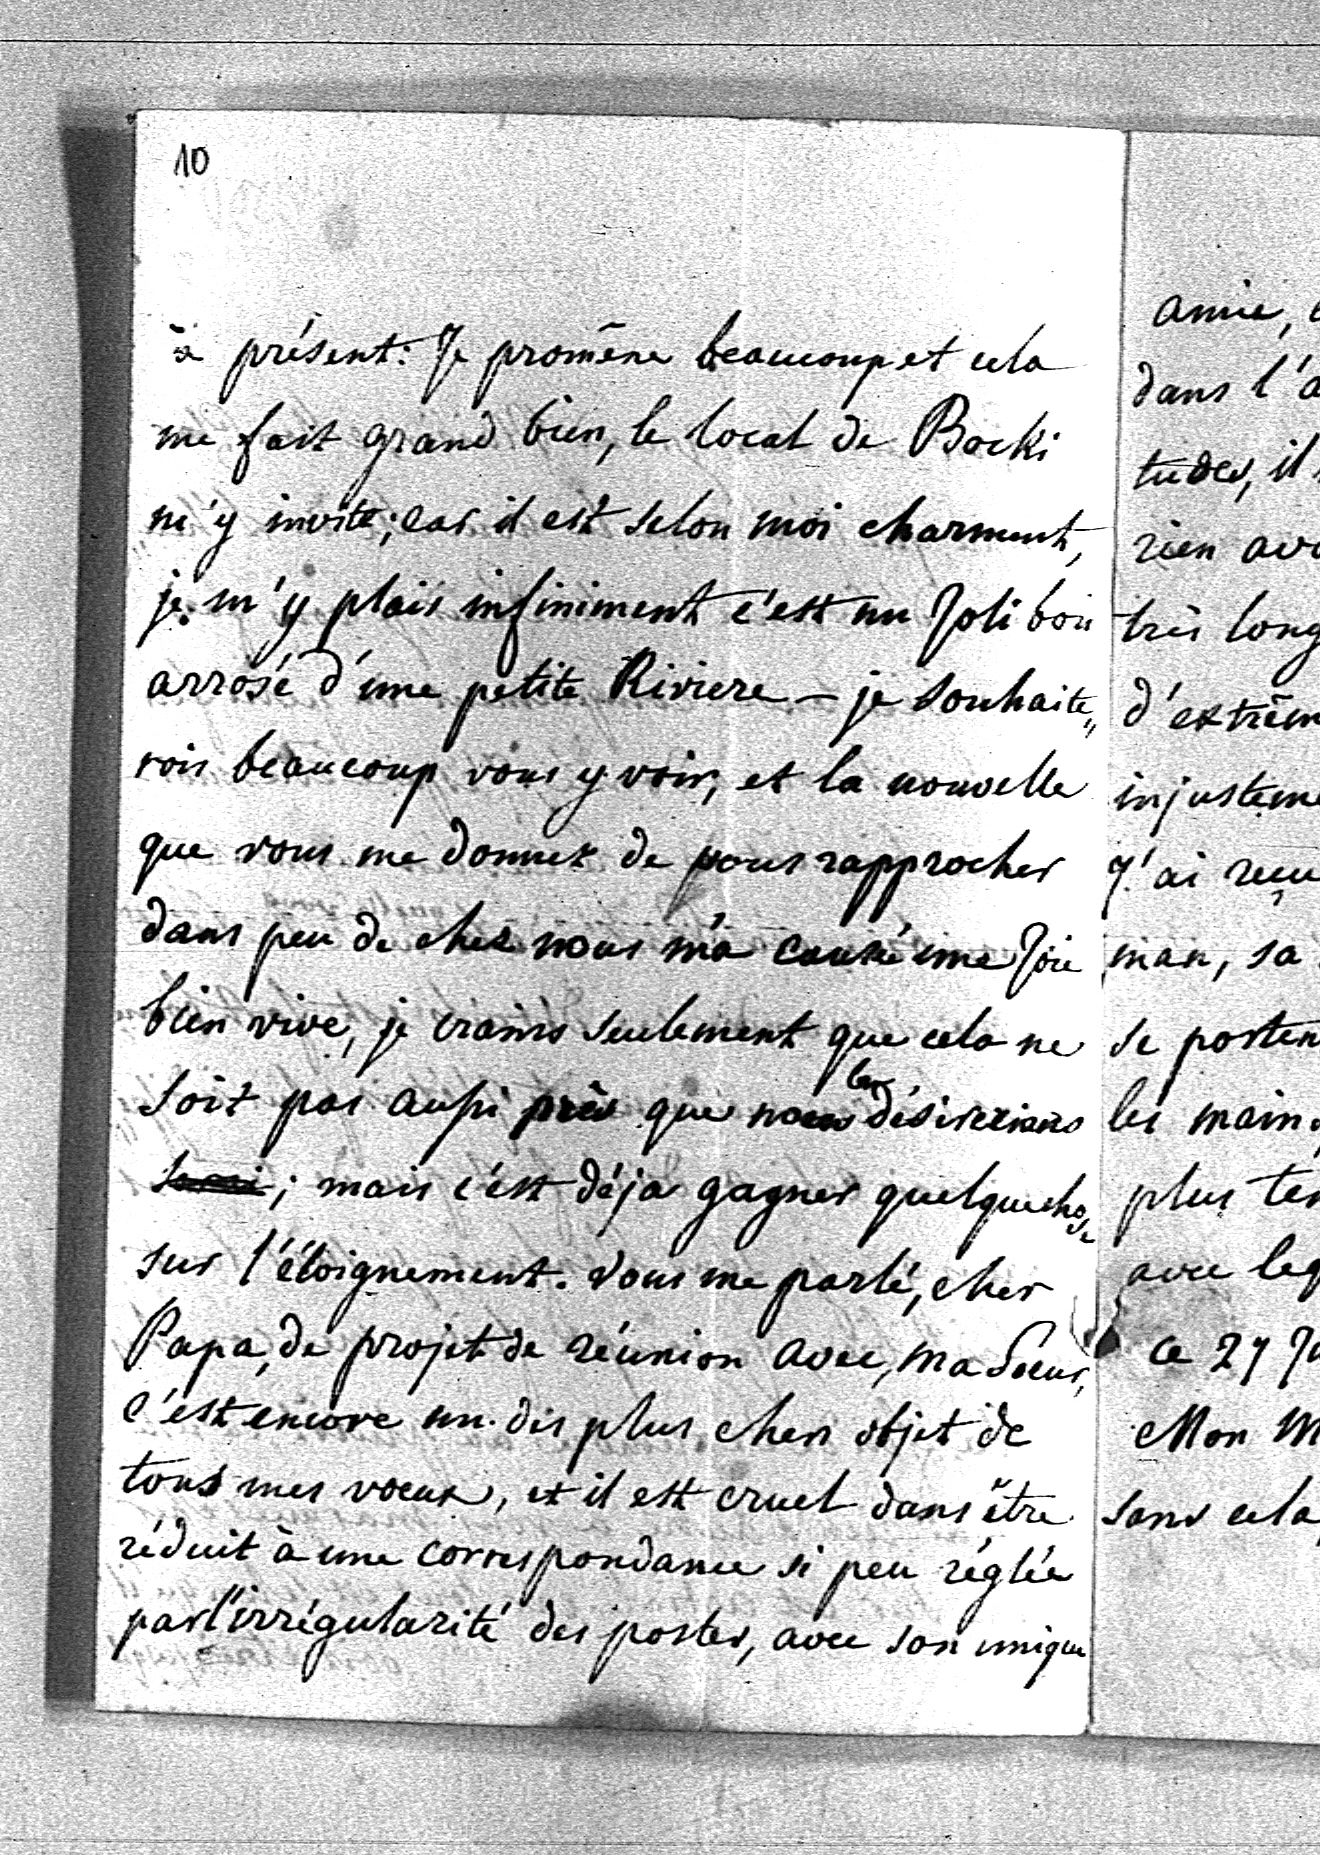 10
à présent: Je promêne beaucoup et cela
me fait grand bien, le local de Bocki
m'y invite; car il est selon moi charment,
je m'y plais infiniment c'est un Joli bois
arrosé d'une petite Riviere — je souhaite„
rois beaucoup vous y voir, et la nouvelle
que vous me donnez de vous rapprocher
dans peu de chez nous m'a causé une Joie
bien vive, je crains seulement que cela ne
soit pas aussi près que nous le désirerions
; mais c'est déja gagner quelquechose
sur l'éloignement. Vous me parlé, cher
Papa, de projet de réunion avec, ma Soeur,
c'est encore un des plus chers objet de
tous mes voeux, et il est cruel dans être
réduit à une correspondance si peu réglée
par l'irrégularité des postes, avec son unique
amie,
dans l'a
tudes, il
rien ava
très long
d'extrêm
injusteme
J'ai reçu
man, sa
se porten
les mains
plus ten
avec leq
ce 27 Ju
Mon M
sans cela,